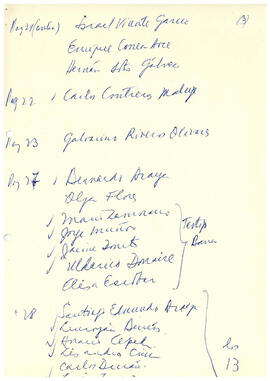 Pag 21 (contin) Israel Vicente Garcia (3)
Enrique Correa Arce
Hernán Soto Gálvez
Pag 22 Carlos Contreras Maluje
Pag 23 Galvarino Rivero Olivares
Pag 27 Bernardo Araya
Olga Flores
Mario Zamorano
Jorge Muñoz
Jaime Donato
Uldarico Donaire
Elisa Escobar
28 Santiago Edmundo Araya
Horacio Cepeda
Lisandro Cruz
Carlos Durán
los
13